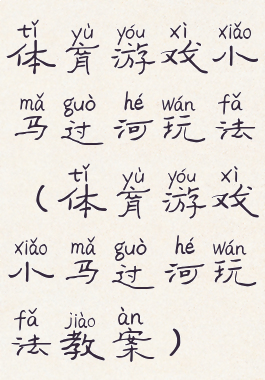 tǐ yù yóu xì xiǎo
体育游戏小
mǎ guò hé wán fǎ
马过河玩法
tǐ yù yóu xì
（体育游戏
xiǎo mǎ guò hé wán
小马过河玩
fǎ jiào àn
法教案）